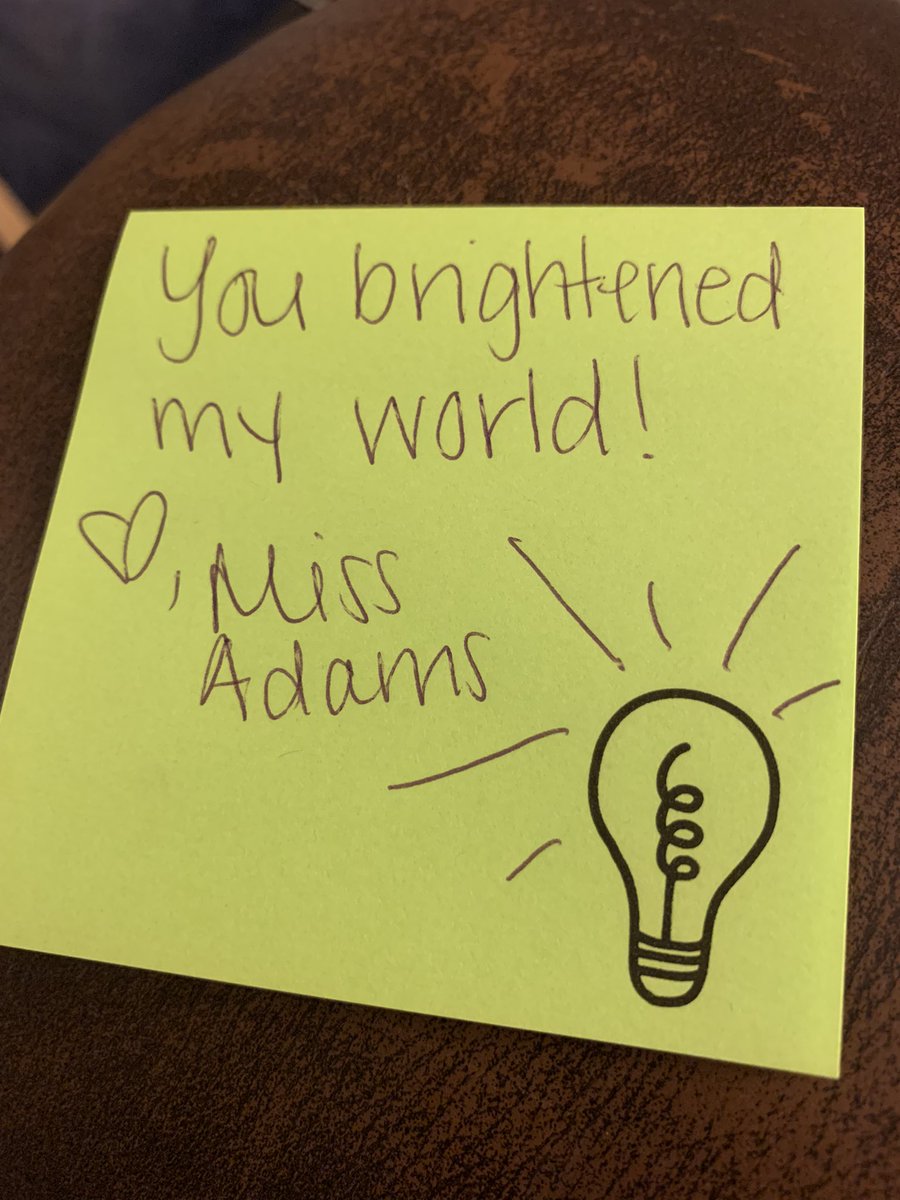 You brightened
my world!
♡, Miss
Adams